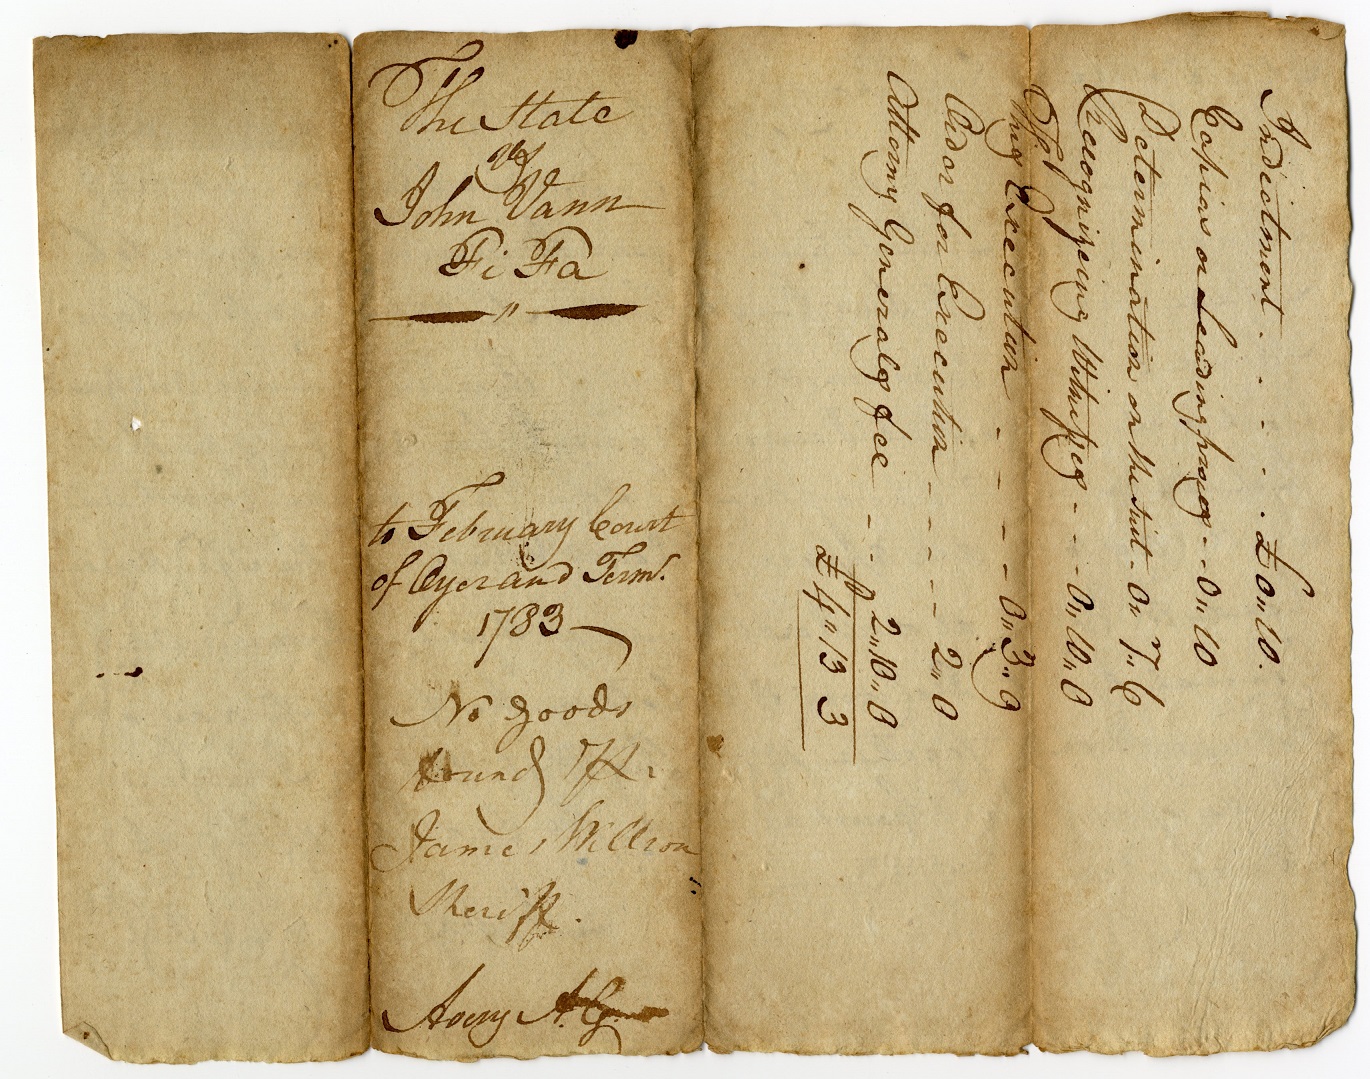 The State
vs
John Vann
Fi Fa
"
to February Court
of Oyer and Term.r
1783
No goods
found
James Willson
Sheriff.
Avery A. G
Indictment . . . . . £0"10.
Copias or Leading process - - 0"10
Determination on the suit - 0"7"6
Recognizing Witnesses - - - 0"10"0
This Execution - - - - 0"3"9
Order for Execution - - - - 2"0
Attorny Generals fee - - - 2"10"0
£4"13 3